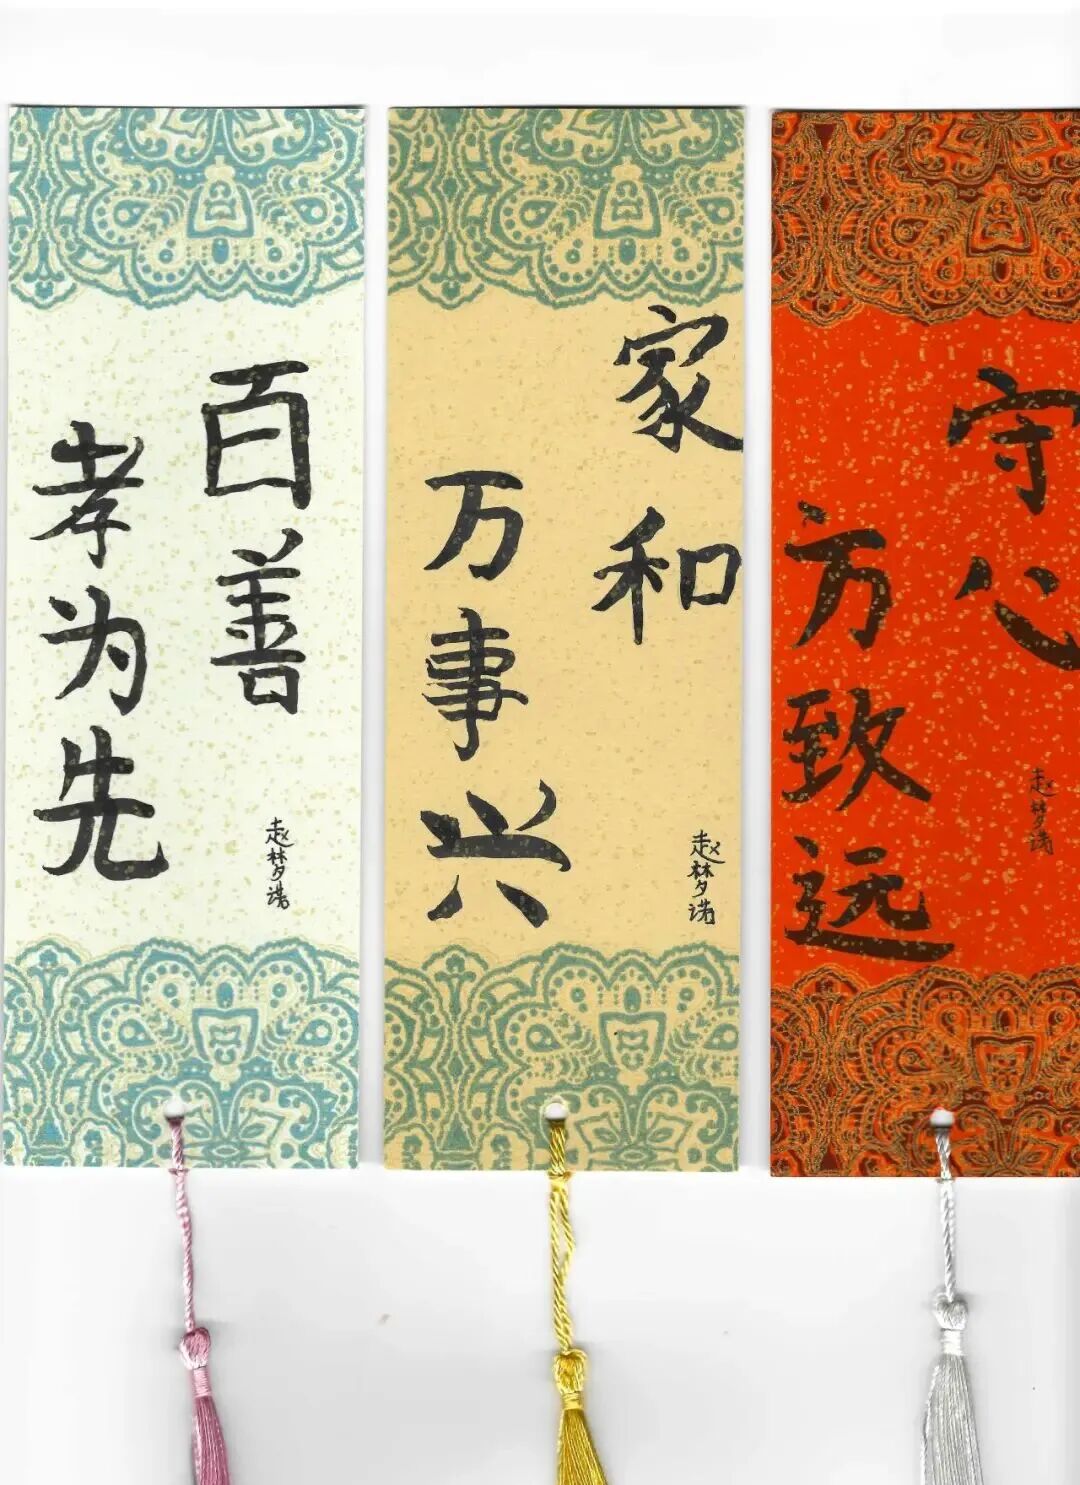 百善
孝为先
赵梦诺
家和
万事兴
赵梦诺
守心
方致远
赵梦诺